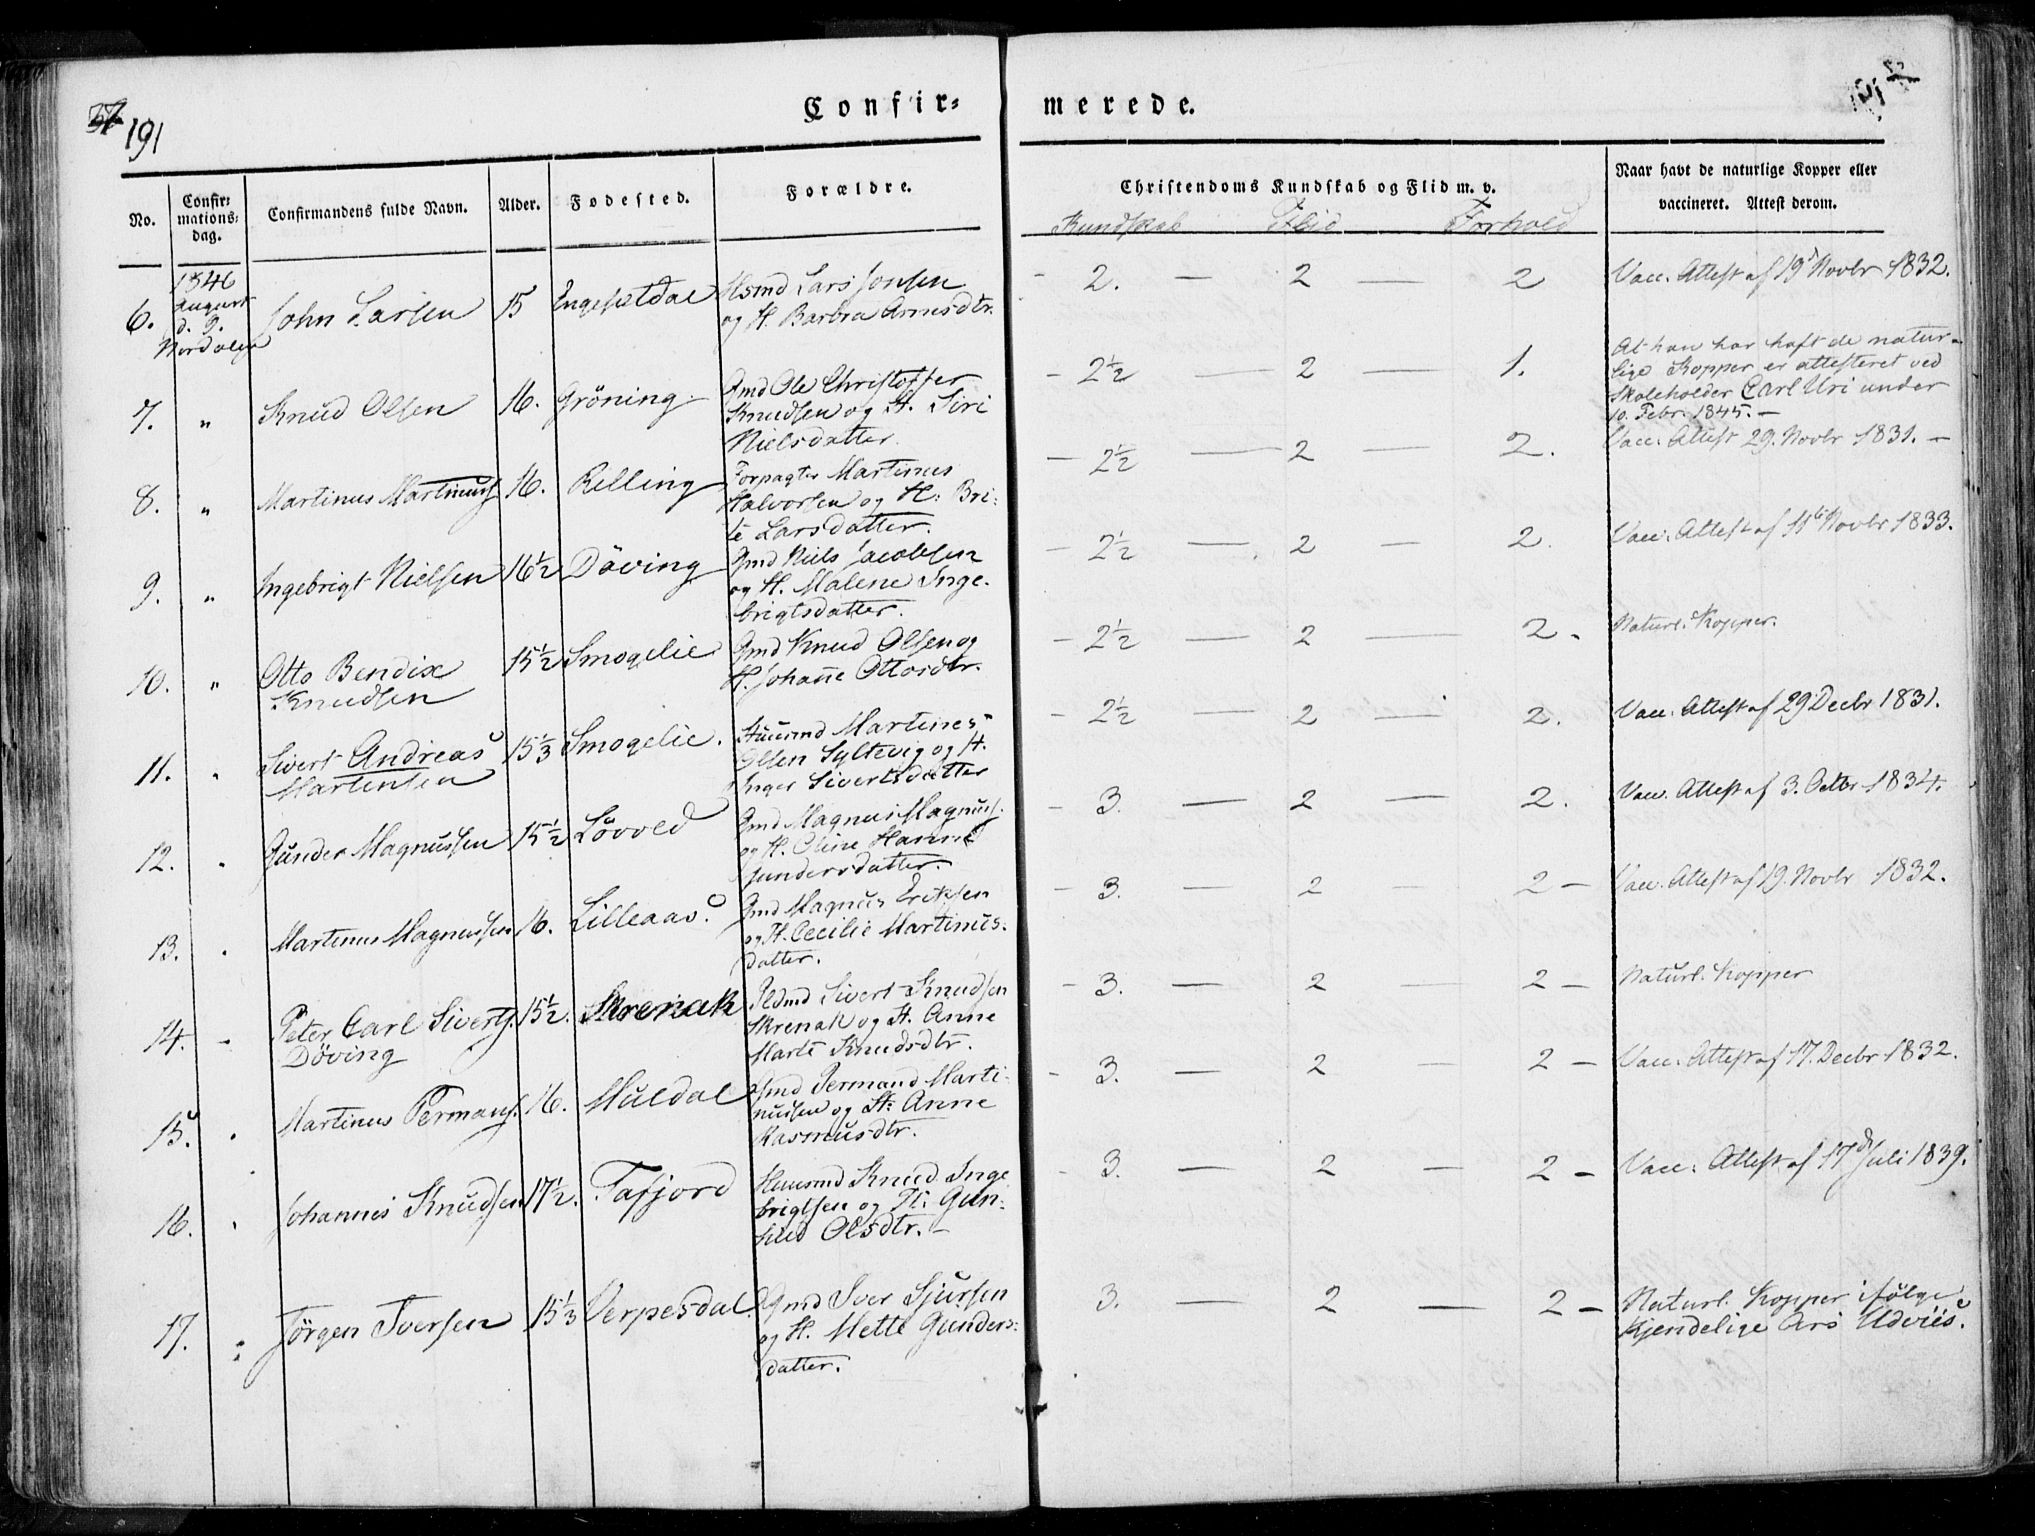 191
Confir=
merede.
191
No.
Confir=
mations=
dag.
Confirmandens fulde Navn.
Alder.
Fødested.
Forældre.
Christendoms Kundskab og Flid m. v.
Kundskab Flid Forhold
Naar havt de naturlige Kopper eller
vaccineret. Attest derom.
6.
1846
August
d. 9.
Nordalen
John Larsen
15
Engesetdal
Hsmd Lars Jonsen
og H. Barbra Arnesdtr.
- 2. — 2 2
Vacc. Attest af 19d Novbr 1832.
7. "
Knud Olsen
16.
Gröning.
Gmd Ole Christoffer
Knudsen og H. Siri
Nielsdatter.
- 2½ — 2 — 1.
At han har haft de natur-
lige Kopper er attesteret ved
Skoleholder Carl Uri under
10. Febr. 1845. —
8. "
Martinus Martinuss
16.
Relling
Forpagter Martinus
Halvorsen og H: Bri=
te Larsdatter.
- 2½ — 2 — 2.
Vacc. Attest 29. Novbr 1831. —
9. "
Ingebrigt Nielsen
16½
Döving
Gmd Niels Jacobsen
og H. Malene Inge-
brigtsdatter.
- 2½ — 2 — 2.
Vacc. Attest af 11te Novbr 1833.
10. "
Otto Bendix
Knudsen
15½
Smogelie
Gmd Knud Olsen og
H. Johañe Ottosdtr.
- 2½ — 2 — 2.
Naturl. Kopper.
11. "
Sivert Andreas
Martensen
15⅓
Smogelie.
Huusmd Martines
Olsen Syltevig og H.
Inger Sivertsdatter
- 2½ — 2 — 2.
Vacc. Attest af 29 Decbr 1831.
12. "
Gunder Magnussen
15½
Lövold
Gmd Magnus Magnuss.
og H. Oline Hanne
Gundersdatter.
- 3. — 2 — 2.
Vacc. Attest af 3. Octbr 1834.
13. "
Martinus Magnussen
16.
Lilleaas.
Gmd Magnus Eriksen
og H. Cecilie Martinus-
datter.
- 3. — 2 — 2 —
Vacc. Attest af 19. Novbr 1832.
14. "
Peter Carl Siverts.
Döving
15½.
Skrenak
Pldmd Sivert Knudsen
Skrenak og H. Anne
Marte Knudsdtr.
- 3. — 2 — 2 —
Naturl. Kopper
15. "
Martinus Permans.
16.
Muldal
Gmd Permand Marti-
nussen og H: Anne
Rasmusdtr.
- 3. — 2 — 2 —
Vacc. Attest af 17. Decbr 1832.
16. "
Johannes Knudsen
17½.
Tafjord
Huusmd Knud Inge
brigtsen og H. Gun-
hild Olsdtr. —
- 3. — 2 — 2 —
Vacc. Attest af 17d Juli 1839.
17. "
Jörgen Iversen
15⅓
Verpesdal.
Gmd Iver Sjursen
og H. Mette Gunders=
datter.
3. — 2 — 2 —
Naturl. Kopper ifölge
Kjendelige Ars Udviis.